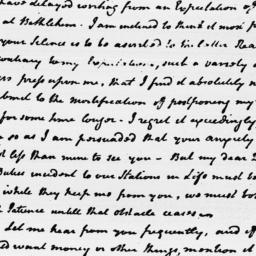 have delayed writing from an Expectation of
at Bethlehem. I am inclined to think it most p
your Silence is to be ascribed to
contrary to my Expectations, such a variety o
ss press upon me, that I find absolutely n
bmit to the mortification of postponing my
for some time longer. I regret it exceedingly
so as I am persuaded that your anxiety
t less than mine to see you — But my dear
Duties incident to our Stations in Life must b
while they keep me from you, we must bo
Patience until that obstacle ceases
Let me hear from you frequently, and if
d want money or other things, mention it